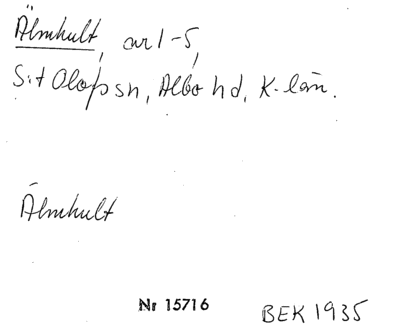 Älmhult, avl-S,
S:t Olofs sn, Albo hd, K-län.
Älmhult
Nr 15716
BEK 1935